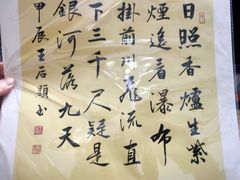 日照香爐生紫
煙遙看瀑布
掛前川飛流直
下三千尺疑是
銀河落九天
甲辰王石書